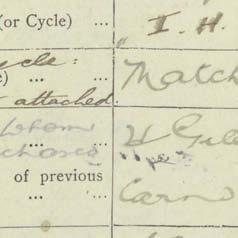 (or Cycle) ... I. H.
cle: Match
e) ... ...
attached.
whom H Gil
chased
of previous Carn
... ...